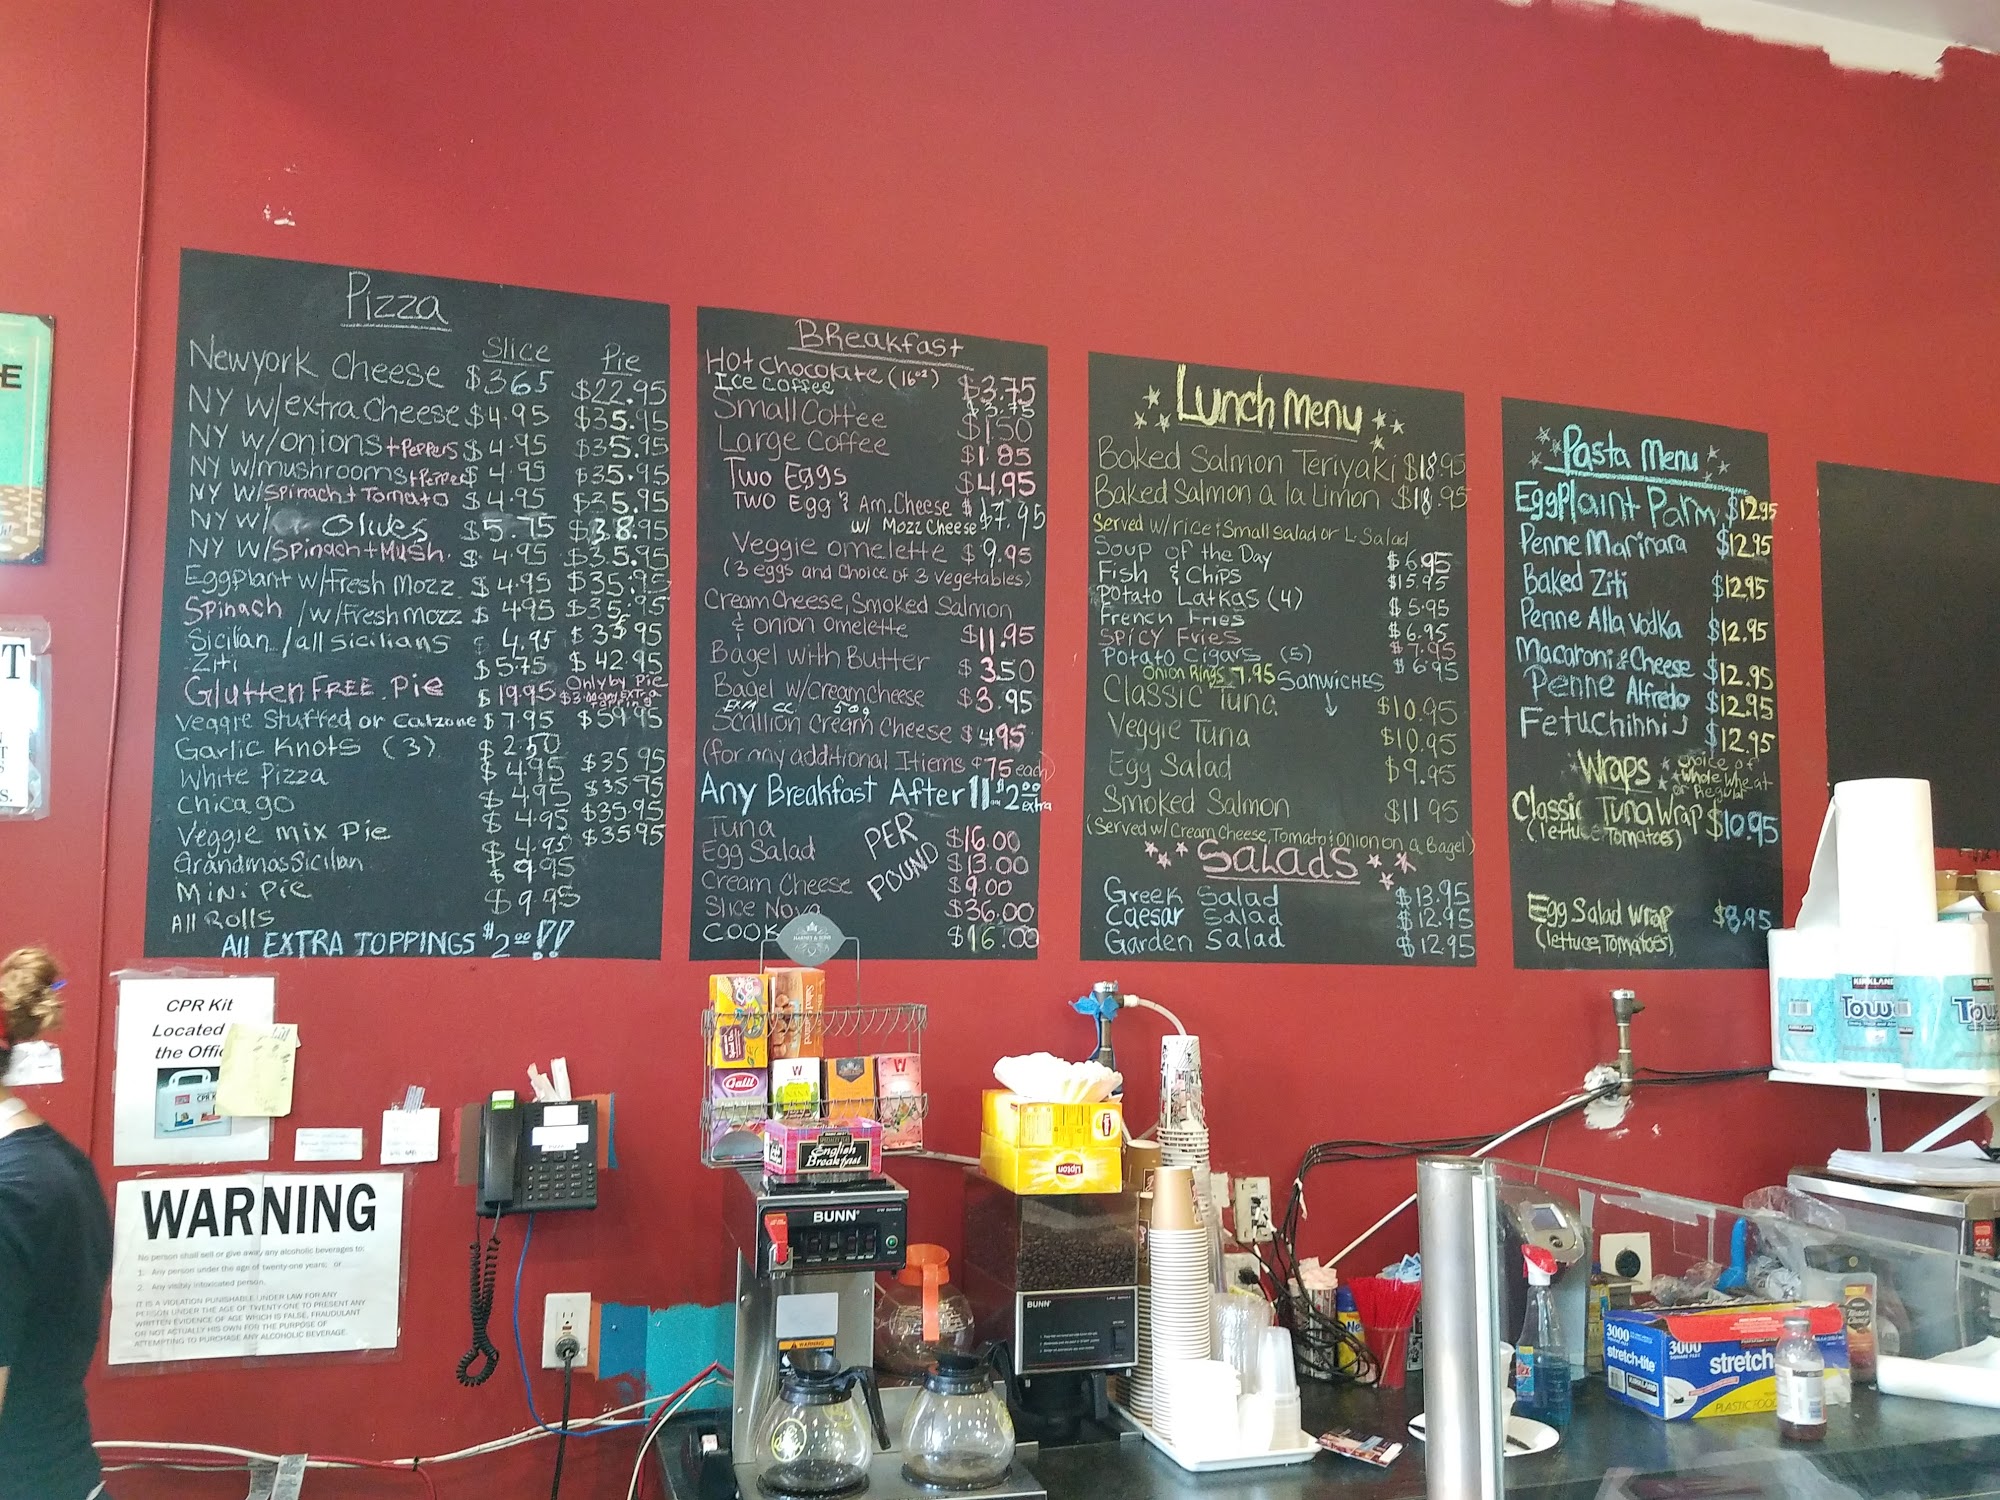 Pizza
Slice Pie
Newyork Cheese $3.65 $22.95
NY w/extra Cheese $4.95 $35.95
NY w/onions +Peppers $4.95 $35.95
NY w/mushrooms +Pepper $4.95 $35.95
NY w/Spinach + Tomato $4.95 $35.95
NY w/ Olives $5.75 $38.95
NY w/Spinach + Mush. $4.95 $35.95
Eggplant w/Fresh Mozz $4.95 $35.95
Spinach /w/fresh mozz $4.95 $35.95
Sicilian /all Sicilians $4.95 $35.95
Ziti $5.75 $42.95
Glutten FREE Pie $19.95 Only by Pie
Veggie Stuffed or Calzone $7.95 $59.95
Garlic Knots (3) $2.50
White Pizza $4.95 $35.95
Chicago $4.95 $35.95
Veggie Mix Pie $4.95 $35.95
Grandmas Sicilian $4.95 $35.95
Mini Pie $9.95
All Rolls $9.95
All EXTRA TOPPINGS $2.00 !!
Breakfast
Hot Chocolate (16oz) $3.75
Ice Coffee $3.75
Small Coffee $1.50
Large Coffee $1.85
Two Eggs $4.95
Two Egg & Am. Cheese $
w/ Mozz Cheese $7.95
Veggie omelette $9.95
(3 eggs and choice of 3 vegetables)
Cream Cheese, Smoked Salmon
& onion omelette $11.95
Bagel with Butter $3.50
Bagel w/creamcheese $3.95
Scallion Cream Cheese $4.95
(for any additional Itiems $.75 each)
Any Breakfast After 11 $2.00 extra
PER POUND
Tuna $16.00
Egg Salad $13.00
Cream Cheese $9.00
Slice Nova $36.00
COOK $16.00
Lunch Menu
Baked Salmon Teriyaki $18.95
Baked Salmon a la Limon $18.95
Served w/rice & Small salad or L. Salad
Soup of the Day $6.95
Fish & Chips $15.95
Potato Latkas (4) $5.95
French Fries $6.95
Spicy Fries $7.95
Potato Cigars (5) $6.95
Onion Rings 7.95 Sanwiches
Classic Tuna $10.95
Veggie Tuna $10.95
Egg Salad $9.95
Smoked Salmon $11.95
(Served w/ Cream Cheese, Tomato & Onion on a Bagel)
Salads
Greek Salad $13.95
Caesar Salad $12.95
Garden Salad $12.95
Pasta Menu
Eggplaint Parm $12.95
Penne Marinara $12.95
Baked Ziti $12.95
Penne Alla Vodka $12.95
Macaroni & Cheese $12.95
Penne Alfredo $12.95
Fetuchinni $12.95
Wraps choice of whole wheat or Regular
Classic Tuna Wrap $10.95
(lettuce Tomatoes)
Egg Salad Wrap $8.95
(lettuce, Tomatoes)
CPR Kit
Located
the Offi
WARNING
No person shall sell or give away any alcoholic beverages to:
1. Any person under the age of twenty-one years; or
2. Any visibly intoxicated person.
IT IS A VIOLATION PUNISHABLE UNDER LAW FOR ANY
PERSON UNDER THE AGE OF TWENTY-ONE TO PRESENT ANY
WRITTEN EVIDENCE OF AGE WHICH IS FALSE, FRAUDULANT
OR NOT ACTUALLY HIS OWN FOR THE PURPOSE OF
ATTEMPTING TO PURCHASE ANY ALCOHOLIC BEVERAGE.
HARNEY & SONS
Galil
English
Breakfast
Lipton
BUNN
WARNING
BUNN
KIRKLAND
Tow
Tow
3000
stretch-tite
KIRKLAND
3000
stretch
PLASTIC FOO